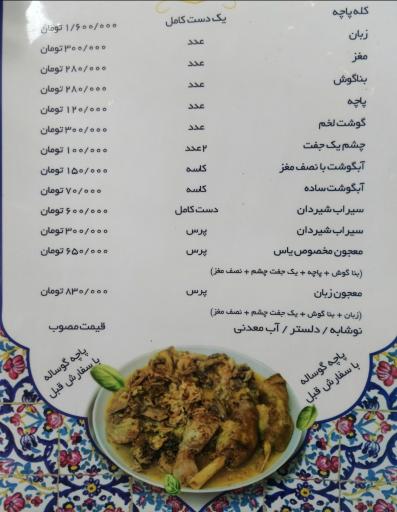 کله پاچه یک دست کامل ۱/۶۰۰/۰۰۰ تومان
زبان عدد ۳۰۰/۰۰۰ تومان
مغز عدد ۲۸۰/۰۰۰ تومان
بناگوش عدد ۲۸۰/۰۰۰ تومان
پاچه عدد ۱۲۰/۰۰۰ تومان
گوشت لخم عدد ۳۰۰/۰۰۰ تومان
چشم یک جفت ۲عدد ۱۰۰/۰۰۰ تومان
آبگوشت با نصف مغز کاسه ۱۵۰/۰۰۰ تومان
آبگوشت ساده کاسه ۷۰/۰۰۰ تومان
سیراب شیردان دست کامل ۶۰۰/۰۰۰ تومان
سیراب شیردان پرس ۳۰۰/۰۰۰ تومان
معجون مخصوص یاس پرس ۶۵۰/۰۰۰ تومان
(بنا گوش + پاچه + یک جفت چشم + نصف مغز)
معجون زبان پرس ۸۳۰/۰۰۰ تومان
(زبان + بنا گوش + یک جفت چشم + نصف مغز)
نوشابه / دلستر / آب معدنی قیمت مصوب
پاچه گوساله
با سفارش قبل
پاچه گوساله
با سفارش قبل